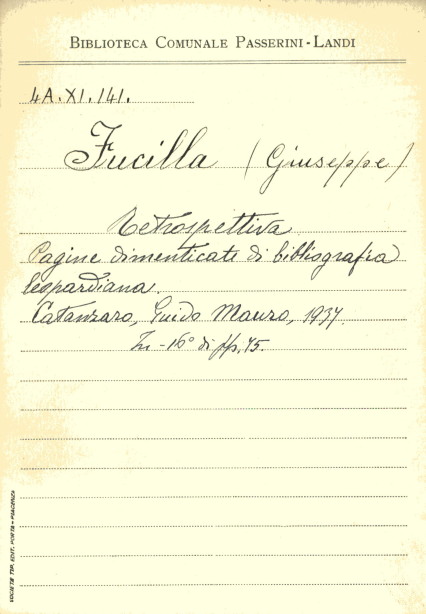 BIBLIOTECA COMUNALE PASSERINI-LANDI
4A.XI.141.
Fucilla (Giuseppe)
Retrospettiva
Pagine dimenticate di bibliografia
leopardiana.
Catanzaro, Guido Mauro, 1937.
In-16° di pp. 45.
SOCIETÀ TIP. EDIT. PORTA - PIACENZA